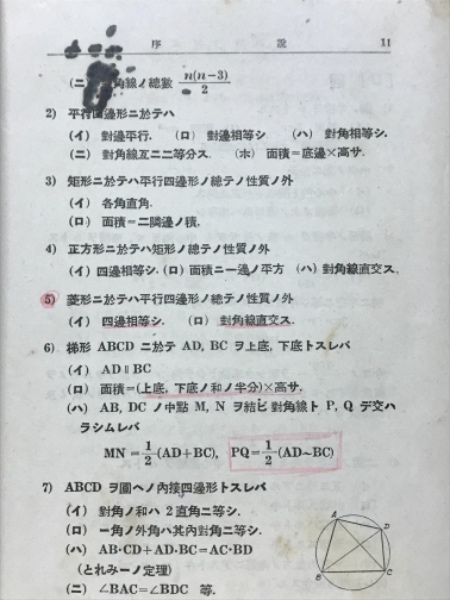 序 說 11
(ニ) 角線ノ總數 n(n-3)/2
2) 平行四邊形ニ於テハ
(イ) 對邊平行. (ロ) 對邊相等シ. (ハ) 對角相等シ.
(ニ) 對角線互ニ二等分ス. (ホ) 面積=底邊×高サ.
3) 矩形ニ於テハ平行四邊形ノ總テノ性質ノ外
(イ) 各角直角.
(ロ) 面積=二隣邊ノ積.
4) 正方形ニ於テハ矩形ノ總テノ性質ノ外
(イ) 四邊相等シ. (ロ) 面積ニ一邊ノ平方 (ハ) 對角線直交ス.
5) 菱形ニ於テハ平行四邊形ノ總テノ性質ノ外
(イ) 四邊相等シ. (ロ) 對角線直交ス.
6) 梯形 ABCD ニ於テ AD, BC ヲ上底, 下底トスレバ
(イ) AD∥BC
(ロ) 面積=(上底, 下底ノ和ノ半分)×高サ.
(ハ) AB, DC ノ中點 M, N ヲ結ビ 對角線ト P, Q デ交ハ
ラシムレバ
MN=1/2(AD+BC), PQ=1/2(AD~BC)
7) ABCD ヲ圓ヘノ內接四邊形トスレバ
(イ) 對角ノ和ハ 2 直角ニ等シ.
(ロ) 一角ノ外角ハ其內對角ニ等シ.
(ハ) AB·CD+AD·BC=AC·BD
(とれみーノ定理)
(ニ) ∠BAC=∠BDC 等.
A
D
B
C